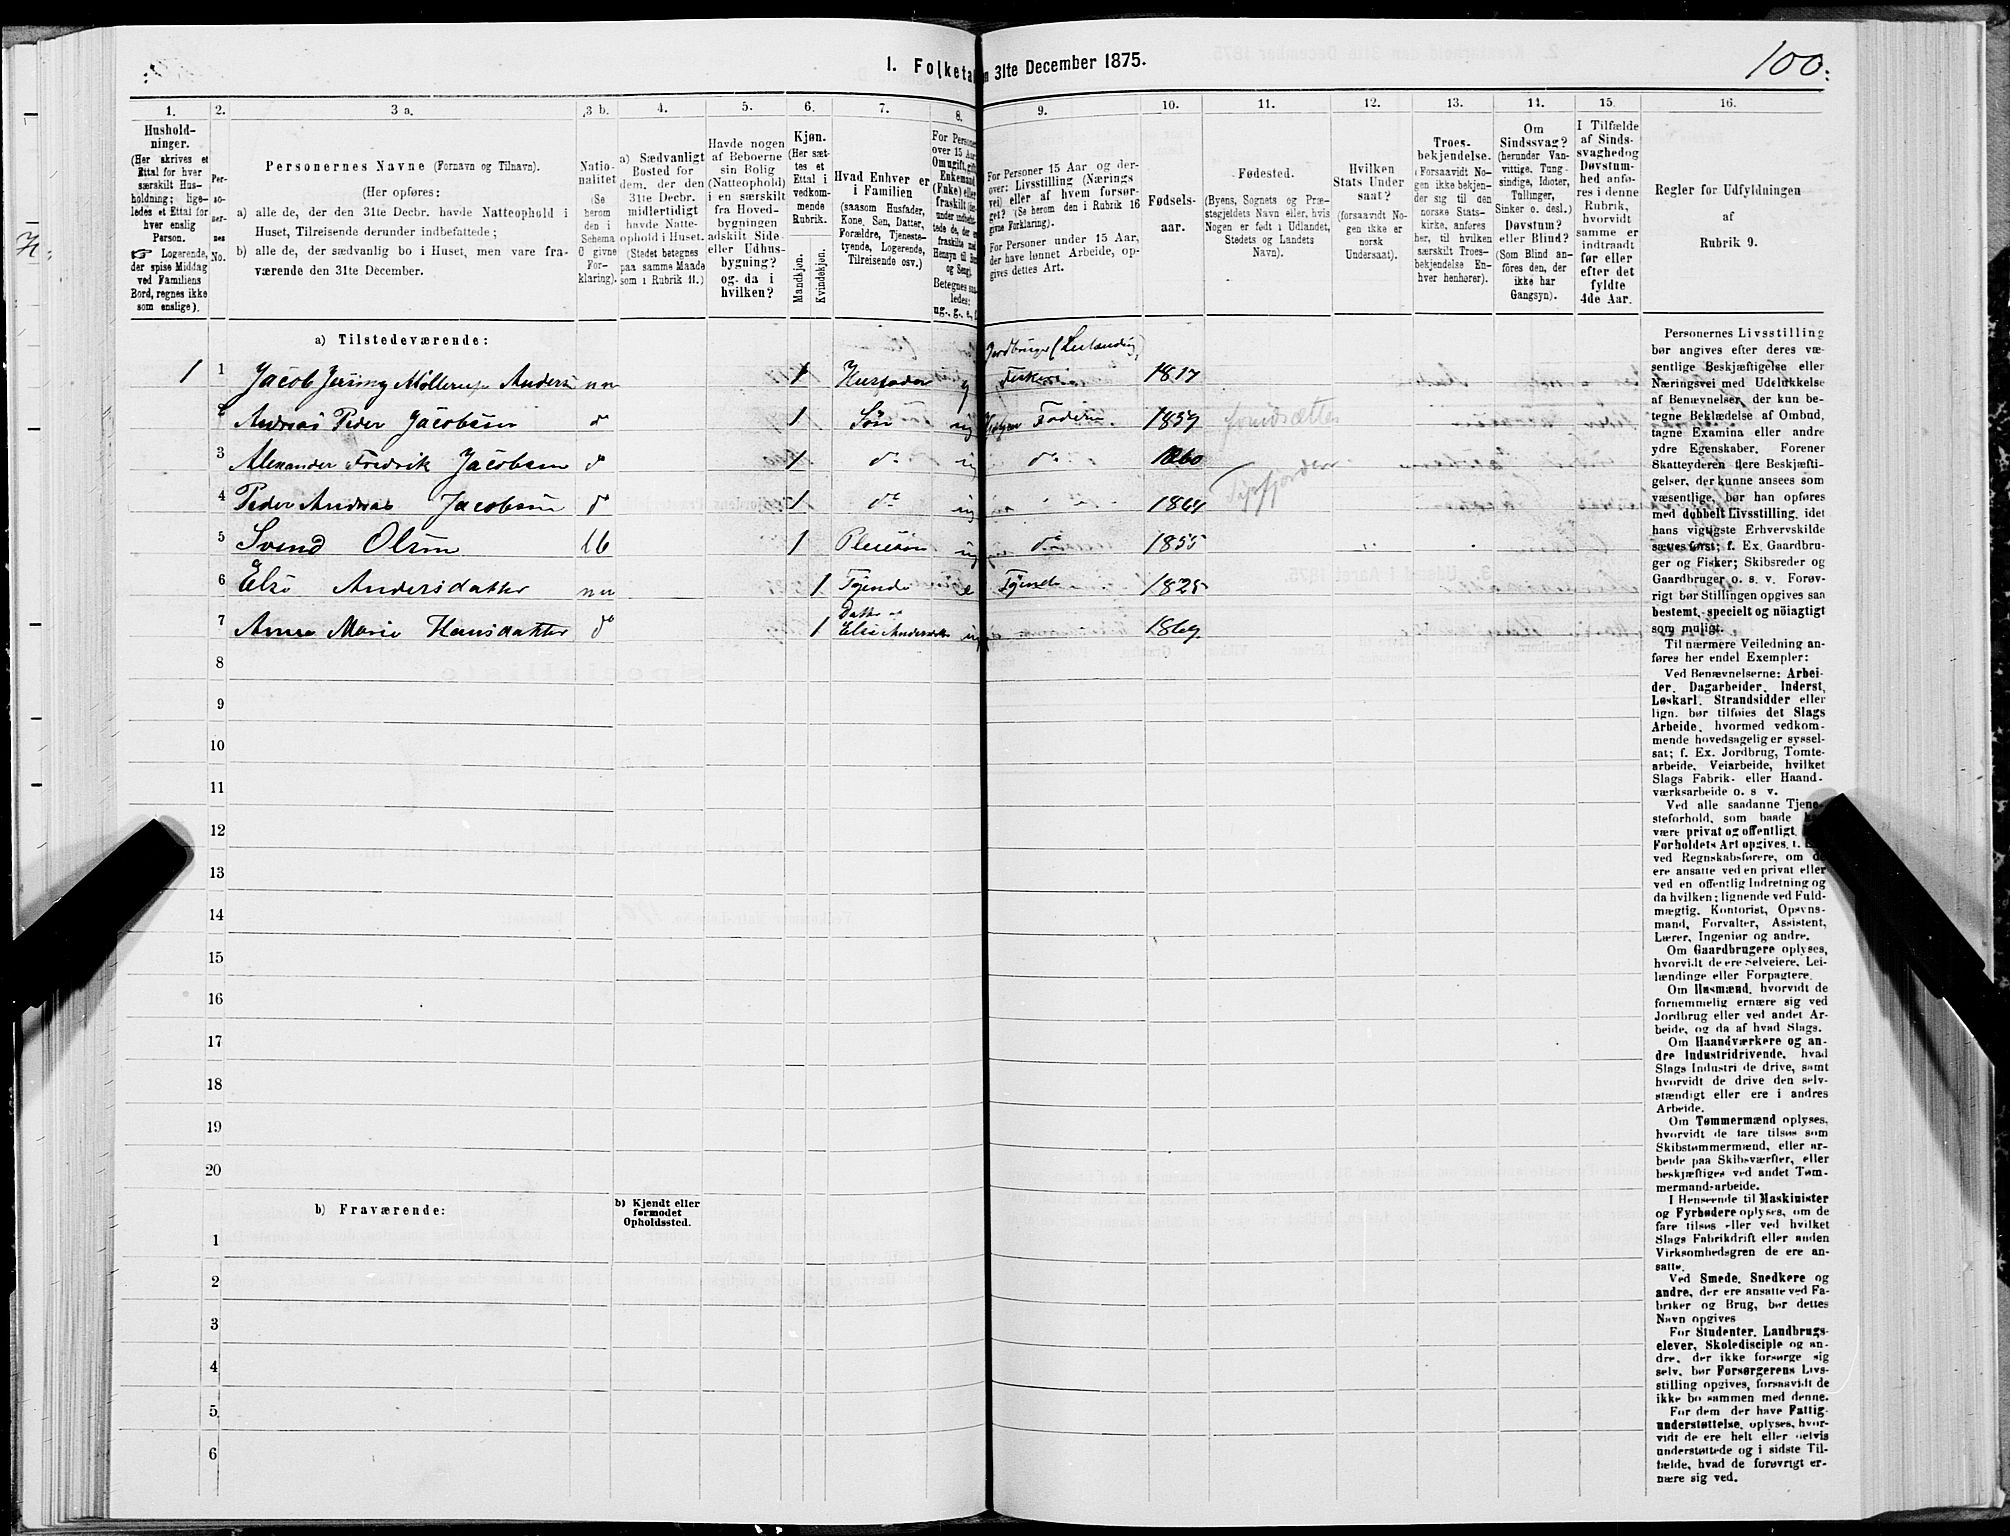 1. Folketal den 31te December 1875.
100.
1. 2. 3 a. 3 b. 4. 5. 6. 7. 8. 9. 10. 11. 12. 13. 14. 15. 16.
Hushold-
ninger.
(Her skrives et
Ettal for hver
særskilt Hus-
holdning; lige-
ledes et Ettal for
hver enslig
Person.
☞ Logerende,
der spise Middag
ved Familiens
Bord, regnes ikke
som enslige).
Per-
so-
ner-
nes
No.
Personernes Navne (Fornavn og Tilnavn).
(Her opføres:
a) alle de, der den 31te Decbr. havde Natteophold i
Huset, Tilreisende derunder indbefattede;
b) alle de, der sædvanlig bo i Huset, men vare fra-
værende den 31te December.
Natio-
nalitet
(Se
herom
den i
Schema
C givne
For-
klaring).
a) Sædvanligt
Bosted for
dem, der den
31te Decbr.
midlertidigt
havde Natte-
ophold i Huset.
(Stedet betegnes
paa samme Maade
som i Rubrik 11.)
Havde nogen
af Beboerne
sin Bolig
(Natteophold)
i en særskilt
fra Hoved-
bygningen
adskilt Side-
eller Udhus-
bygning?
og da i
hvilken?
Kjøn.
(Her sæt-
tes et
Ettal i
vedkom-
mende
Rubrik.
Mandkjøn.
Kvindekjøn.
Hvad Enhver er
i Familien
(saasom Husfader,
Kone, Søn, Datter,
Forældre, Tjeneste-
tyende, Logerende,
Tilreisende osv.)
For Personer
over 15 Aar:
Om ugift, gift,
Enkemand
(Enke) eller
fraskilt
Betegnes saa-
ledes:
ug., g., e., f.
For Personer 15 Aar og der-
over: Livsstilling (Nærings-
vei) eller af hvem forsør-
get? (Se herom den i Rubrik 16
givne Forklaring).
For Personer under 15 Aar,
der have lønnet Arbeide, op-
gives dettes Art.
Fødsels-
aar.
Fødested.
(Byens, Sognets og Præ-
stegjeldets Navn eller, hvis
Nogen er født i Udlandet,
Stedets og Landets
Navn).
Hvilken
Stats Under
saat?
(forsaavidt No-
gen ikke er
norsk
Undersaat).
Troes-
bekjendelse.
(Forsaavidt No-
gen ikke bekjen-
der sig til den
norske Stats-
kirke, anføres
her, til hvilken
særskilt Troes-
bekjendelse En-
hver henhører).
Om
Sindssvag?
(herunder Van-
vittige, Tung-
sindige, Idioter,
Tullinger,
Sinker o. desl.)
Døvstum?
eller Blind?
(Som Blind an-
føres den, der
ikke har
Gangsyn).
I Tilfælde
af Sinds-
svaghed og
Døvstum-
hed anfø-
res i denne
Rubrik,
hvorvidt
samme er
indtraadt
før eller
efter det
fyldte
4de Aar.
Regler for Udfyldningen
af
Rubrik 9.
a) Tilstedeværende:
Jordbruger (Leilænding)
1 1 Jacob Jessing Møllerup Anders nn 1 Husfader g Fiskeri 1817
2 Andreas Peder Jacobsen do 1 Søn ug Hjelper Faderen 1859 Trondsætter
3 Alexander Fredrik Jacobsen do 1 do ug do 1860
4 Peder Andreas Jacobsen do 1 do ug 1864 Tysfjorden
5 Svend Olsen lb 1 Pleiesøn ug do 1855
6 Else Andersdatter nn 1 Tjende e Tjende 1825
Datter af
7 Anna Marie Hansdatter do 1 Else Andersdtr ug 1869
8
9
10
11
12
13
14
15
16
17
18
19
20
b) Fraværende:
b) Kjendt eller
formodet
Opholdssted.
1
2
3
4
5
6
Personernes Livsstilling
bør angives efter deres væ-
sentlige Beskjæftigelse eller
Næringsvei med Udelukkelse
af Benævnelser, der kun be-
tegne Beklædelse af Ombud,
tagne Examina eller andre
ydre Egenskaber. Forener
Skatteyderen flere Beskjæfti-
gelser, der kunne ansees som
væsentlige, bør han opføres
med dobbelt Livsstilling, idet
hans vigtigste Erhvervskilde
sættes først; f. Ex. Gaardbru-
ger og Fisker; Skibsreder og
Gaardbruger o. s. v. Forøv-
rigt bør Stillingen opgives saa
bestemt, specielt og nöiagtigt
som muligt.
Til nærmere Veiledning an-
føres her endel Exempler:
Ved Benævnelserne: Arbei-
der, Dagarbeider, Inderst,
Løskarl, Strandsidder eller
lign. bør tilføies det Slags
Arbeide, hvormed vedkom-
mende hovedsagelig er syssel-
sat; f. Ex. Jordbrug, Tomte-
arbeide, Veiarbeide, hvilket
Slags Fabrik- eller Haand-
værksarbeide o. s v.
Ved alle saadanne Tjene-
steforhold, som baade
være privat og offentligt,
Forholdets Art opgives,
ved Regnskabsførere, om de
ere ansatte ved en privat eller
ved en offentlig Indretning og
da hvilken; lignende ved Fuld-
mægtig, Kontorist, Opsyns-
mand, Forvalter, Assistent,
Lærer, Ingeniør og andre.
Om Gaardbrugere oplyses,
hvorvidt de ere Selveiere, Lei-
lændinge eller Forpagtere.
Om Husmænd, hvorvidt de
fornemmelig ernære sig ved
Jordbrug eller ved andet Ar-
beide, og da af hvad Slags.
Om Haandværkere og an-
dre Industridrivende, hvad
Slags Industri de drive, samt
hvorvidt de drive den selv-
stændigt eller ere i andres
Arbeide.
Om Tømmermænd oplyses,
hvorvidt de fare tilsøs som
Skibstømmermænd, eller ar-
beide paa Skibsværfter, eller
beskjæftiges ved andet Tøm-
mermand-arbeide.
I Henseende til Maskinister
og Fyrbødere oplyses, om de
fare tilsøs eller ved hvilket
Slags Fabrikdrift eller anden
Virksomhedsgren de ere an-
satte.
Ved Smede, Snedkere og
andre, der ere ansatte ved Fa-
briker og Brug, bør dettes
Navn opgives
For Studenter, Landbrugs-
elever, Skoledisciple og an-
dre, der ikke forsørge sig
selv, bør Forsørgerens Livs-
stilling opgives, forsaavidt de
ikke bo sammen med denne.
For dem der have Fattig-
understøttelse, oplyses, hvor-
vidt de ere helt eller delvis
understøttede og i sidste Til-
fælde, hvad de forøvrigt er-
nære sig ved.